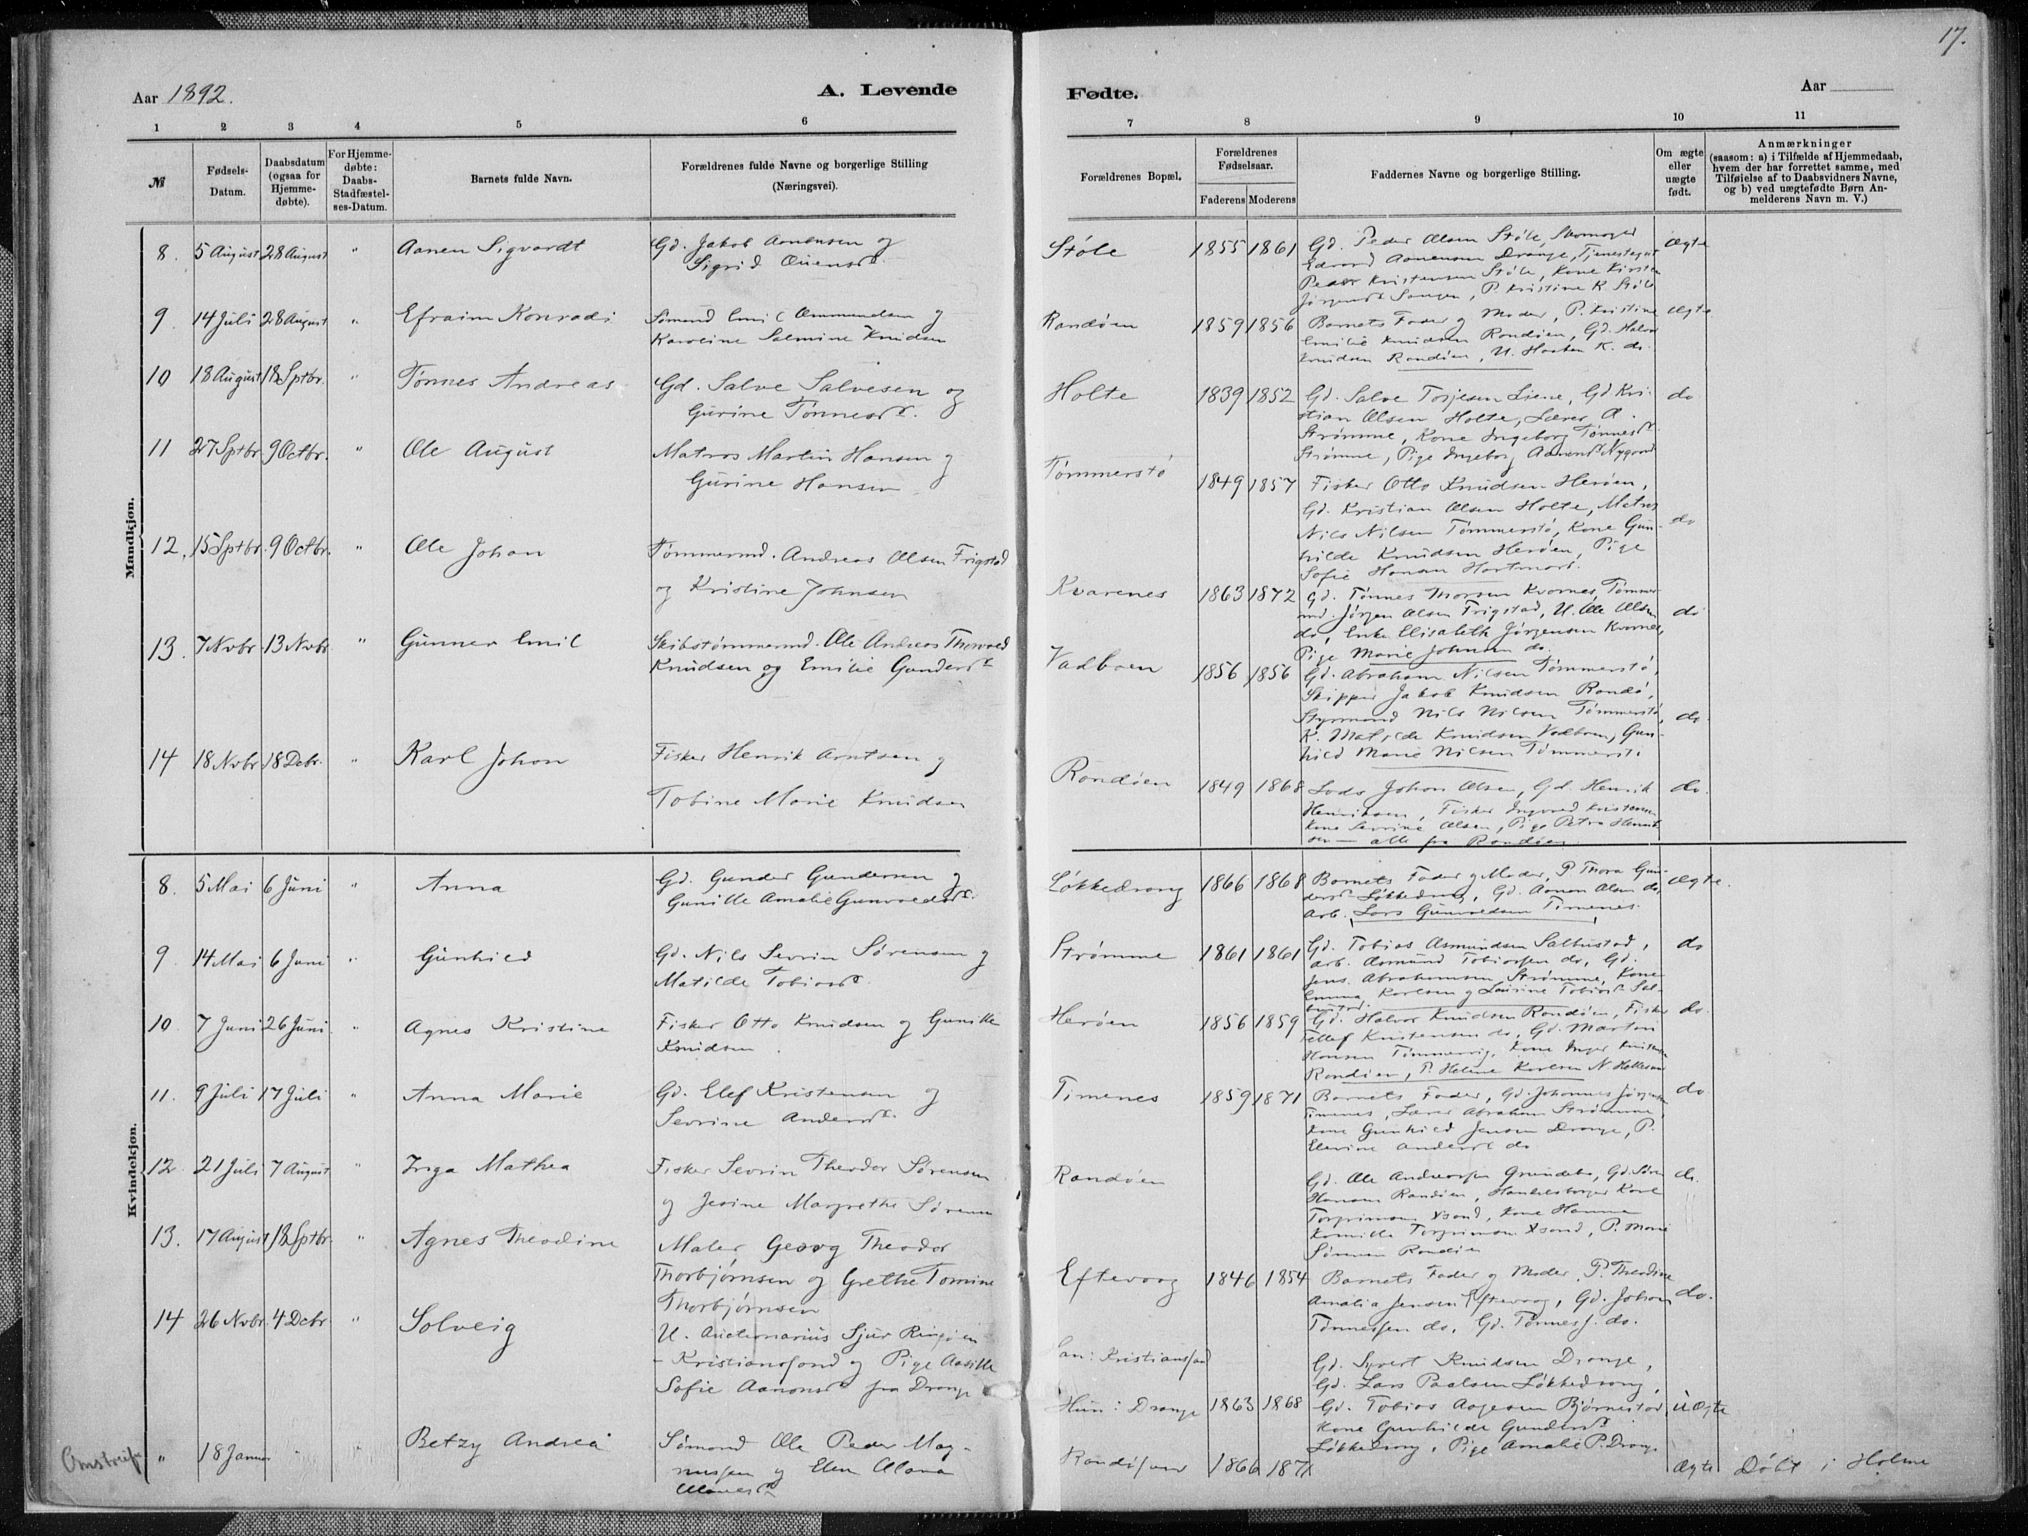 17.
Aar 1892. A. Levende
Fødte. Aar
1 2 3 4 5 6
7 8 9 10 11
№
Fødsels-Datum.
Daabsdatum (ogsaa for Hjemmedøbte).
For Hjemmedøbte: Daabs-Stadfæstelses-Datum.
Barnets fulde Navn.
Forældrenes fulde Navne og borgerlige Stilling
(Næringsvei).
Forældrenes Bopæl.
Forældrenes Fødselsaar.
Faderens Moderens
Faddernes Navne og borgerlige Stilling.
Om ægte eller uægte født.
Anmærkninger
(saasom: a) i Tilfælde af Hjemmedaab,
hvem der har forrettet samme, med
Tilføielse af to Daabsvidners Navne,
og b) ved uægtefødte Børn Anmelderens Navn m. V.)
Mandkjøn.
8. 5 August 28 August " Aanen Sigvardt Gd. Jakob Aanensen og
Sigrid
Støle 1855 1861 Gd. Peder Olsen Støle, Skomager ægte
Edvard Aanensen Drange, Tjenestegut
Peder Kristensen Støle, Kone Kirsten
P. Kristine K. Støle
9. 14 Juli 28 August " Efraim Konradi Sømand Emil og
Karoline Salmine Knudsen
Randøen 1859 1856 Barnets Fader og Moder, P. Kristine ægte
Emilie Knudsen Randøen, Gd. Halvor
Knudsen Randøen, U. K. do.
10 18 August 18 Sptbr. " Tønnes Andreas Gd. Salve Salvesen og
Gurine Tønnesd.
Holte 1839 1852 Gd. Salve Torjesen Liene, Gd Kri- do
stian Olsen Holte, Lærer A.
Strømme, Kone Ingeborg Tønnesd.
Strømme, Pige Ingeborg Aanensd. Nygaard
11 27 Sptbr. 9 Octbr. " Ole August Matros Martin Hansen og
Gurine Hansen
Tømmerstø 1849 1857 Fisker Otto Knudsen Herøen,
Gd. Kristian Olsen Holte, Matros
Nils Nilsen Tømmerstø, Kone Gun- do
hilde Knudsen Herøen, Pige
Sofie Hansen
12. 15 Sptbr. 9 Octbr. " Ole Johan Tømmermd. Andreas Olsen Frigstad
og Kristine Johnsen
Kvarenes 1863 1872 Gd. Tønnes Kvarnes, Tømmer
md. Jørgen Olsen Frigstad, U. Ole Olsen do
do, Enke Elisabeth Jørgensen Kvarnes,
Pige Marie Johnsen do.
13. 7 Nvbr. 13 Nvbr. " Gunner Emil Skibstømmermd. Ole Andreas Thorvald
Knudsen og Emilie Gundersd.
Vadboen 1856 1856 Gd. Abraham Nilsen Tømmerstø,
Skipper Jakob Knudsen Randø,
Styrmand Nils Nilsen Tømmerstø, do.
K. Matilde Knudsen Vadboen, Gun-
hild Marie Nilsen Tømmerst.
14 18 Nvbr. 18 Debr. " Karl Johan Fisker Henrik Arntsen og
Tobine Marie Knudsen
Randøen 1849 1868 Lods Johan Olsen, Gd. Henrik do.
Henriksen, Fisker Ingvald Kristensen
Kone Sevrine Olsen, Pige Petra Henrik-
sen – alle fra Randøen.
Kvindekjøn.
8. 5 Mai 6 Juni " Anna Gd. Gunder Gundersen og
Gunille Amalie Gunvaldsd.
Løkkedrang 1866 1868 Barnets Fader og Moder, P. Thora Gun- ægte.
dersd. Løkkedrang, Gd. Aanen Olsen do,
Arb. Lars Gunvaldsen Timenes.
9. 14 Mai 6 Juni " Gunhild Gd. Nils Sevrin Sørensen og
Matilde Tobiasd.
Strømme 1861 1861 Gd. Tobias Asmundsen Salbustad, do
Arb. Asmund Tobiassen do, Gd.
Jens Abrahamsen Strømme, Kone
Emma Karlsen og Laurine Tobiasd. Sal-
bustad.
10. 7 Juni 26 Juni " Agnes Kristine Fisker Otto Knudsen og Gunille
Knudsen.
Herøen 1856 1859 Gd. Halvor Knudsen Randøen, Fisker do.
Tellef Kristensen do, Gd. Martin
Hansen Tømmervig, Kone Inger
Randøen, P. Helene Karlsen
11. 9 Juli 17 Juli " Anna Marie Gd. Elef Kristensen og
Sevrine Andersd.
Timenes 1859 1871 Barnets Fader, Gd. Johannes Jørgensen do.
Timenes, Lærer Abraham Strømme,
Kone Gunhild Jensen Drange, P.
Elevine Andersd. do
12. 21 Juli 7 August " Inga Mathea Fisker Sevrin Theodor Sørensen
og Jesine Margrethe Sørensen
Randøen Gd. Ole Andreassen Grundebø, Gd. Søren do.
Hansen Randøen, Handelsborger Karl
Torgrimsen Xsand, Kone Hanna
Kamilla Torgrimsen Xsand, P. Marie
Sørensen Randøen
13. 17 August 18 Sptbr. " Agnes Theodine Maler Georg Theodor
Thorbjørnsen og Grethe Tomine
Thorbjørnsen
Eftevaag 1846 1854 Barnets Fader og Moder, P. Theodine
Amalia Jensen Eftevaag, Gd. Johan do.
Tønnessen do, Gd. Tønnes J. do.
14 26 Nvbr. 4 Debr. " Solveig U. Auctionarius Sjur Ringøen
– Kristianssand og Pige Aasille
Sofie Aanonsd. fra Drange
Han: Kristianssand Gd. Syvert Knudsen Drange,
Gd. Lars Paalsen Løkkedrang,
Hun: Drange 1863 1868 Gd. Tobias Aagesen Bjørnestad, uægte
Kone Gunhilde Gundersd.
Løkkedrang, Pige Amalie P. Drange
" 18 Januar " " Betzy Andrea Sømand Ole Peder Mag-
nussen og Elen Olava
Olavesd.
1866 1871 ægte Døbt i Holme